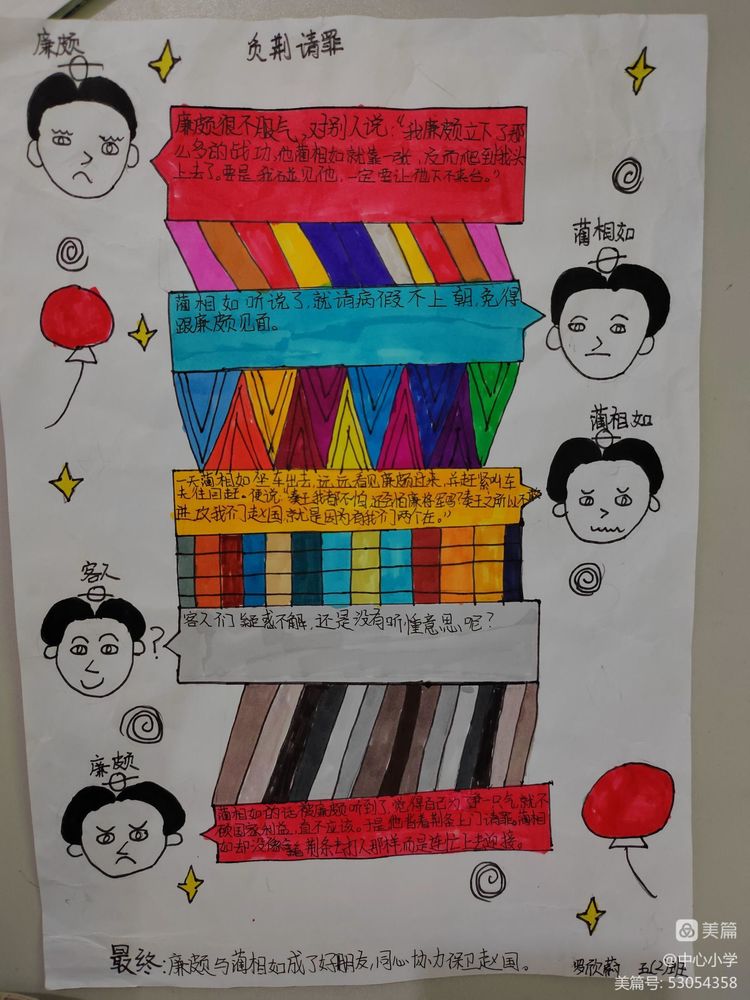 廉颇
负荆请罪
廉颇很不服气，对别人说：“我廉颇立下了那
么多的战功，他蔺相如就靠一张，反而爬到我头
上去了。要是我碰见他，一定要让他下不来台。”
蔺相如
蔺相如听说了，就请病假不上朝，免得
跟廉颇见面。
蔺相如
一天蔺相如坐车出去，远远看见廉颇过来，并赶紧叫车
夫往回赶。便说：“秦王我都不怕，还会怕廉将军吗？秦王之所以不敢
进攻我们赵国，就是因为有我们两个在。”
客人
?
客人们疑惑不解，还是没有听懂意思呢？
廉颇
蔺相如的话被廉颇听到了，觉得自己为争一口气就不
顾国家利益，真不应该。于是他背着荆条上门请罪。蔺相
如却没像拿荆条去打人那样而是连忙上去迎接。
最终：廉颇与蔺相如成了好朋友，同心协力保卫赵国。
罗欣蔚 五(2)班
美篇
@中心小学
美篇号: 53054358